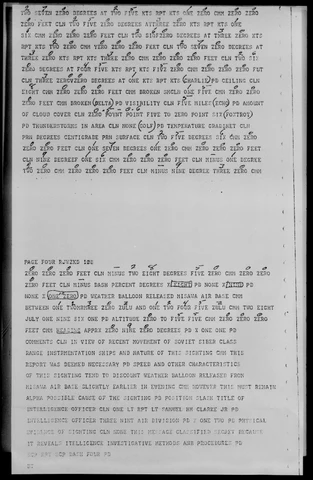 TWO SEVEN ZERO DEGREES AT TWO FIVE KTS RPT KTS ONE CMM ZERO ZERO
ZERO FEET CLN TWO FIVE ZERO DEGREES AT THREE ZERO KTS RPT KTS ONE
SIX CMM ZERO ZERO ZERO FEET CLN TWO ZERO DEGREES AT THREE ZERO KTS
RPT KTS TWO ZERO CMM ZERO ZERO ZERO FEET CLN TWO SEVEN ZERO DEGREES AT
THREE ZERO KTS RPT KTS THREE ZERO CMM ZERO ZERO ZERO FEET CLN TWO SIX
ZERO DEGREES AT FOUR FIVE KTS RPT KTS FIVE ZERO CMM ZERO ZERO ZERO
CLN THREE ZERO ZERO DEGREES AT KTS RPT KTS (CHARLIE) PD CEILING CLN
EIGHT CMM ZERO ZERO ZERO FEET CMM BROKEN ONE FIVE CMM ZERO ZERO
ZERO FEET CMM BROKEN (DELTA) PD VISIBILITY CLN FIVE MILES (ECHO) PD AMOUNT
OF CLOUD COVER CLN ZERO POINT FIVE TO ZERO POINT SIX (FOXTROT)
PD THUNDERSTORMS IN AREA CLN NONE (GOLF) PD TEMPERATURE GRADIENT CLN
DEGREES CENTIGRADE PRN SURFACE CLN TWO FIVE DEGREES SIX CMM ZERO
ZERO ZERO FEET CLN ONE SEVEN DEGREES ONE ZERO CMM ZERO ZERO ZERO FEET
CLN NINE DEGREES ONE SIX CMM ZERO ZERO ZERO FEET CLN MINUS ONE DEGREE
TWO ZERO CMM ZERO ZERO ZERO FEET CLN MINUS NINE DEGREE THREE ZERO CMM
PAGE FOUR RJWZKS
ZERO ZERO ZERO FEET CLN MINUS TWO EIGHT DEGREES FIVE ZERO CMM ZERO ZERO
ZERO FEET CLN MINUS DASH PERCENT DEGREES X EIGHT PD NONE X NINE PD
NONE X ONE ZERO PD WEATHER BALLOON RELEASED MISAWA AIR BASE CMM
BETWEEN ONE THREE ZERO ZULU AND ONE TWO FOUR FIVE ZULU TWO EIGHT
JULY ONE NINE SIX ONE PD ALTITUDE ZERO TO FIVE FIVE CMM ZERO ZERO ZERO
FEET CMM HEADING APPRX ZERO NINE ZERO DEGREES PD X ONE ONE PD
COMMENTS CLN IN VIEW OF RECENT MOVEMENT OF SOVIET CIBER CLASS
RANGE INSTRUMENTATION SHIPS AND NATURE OF THIS SIGHTING CMM THIS
REPORT WAS DEEMED NECESSARY PD SPEED AND OTHER CHARACTERISTICS
OF THIS SIGHTING TEND TO DISCOUNT WEATHER BALLOON RELEASED FROM
MISAWA AIR BASE SLIGHTLY EARLIER IN EVENING CMM HOWEVER THIS MUST REMAIN
ALPHA POSSIBLE CAUSE OF THE SIGHTING PD POSITION CLAIM TITLE OF
INTELLIGENCE OFFICER CLN ONE LT RPT LT CLARKE JR PD
INTELLIGENCE OFFICER THREE NINE AIR DIVISION PD X ONE TWO PD PHYSICAL
EVIDENCE OF SIGHTING CLN NONE THIS MESSAGE CLASSIFIED SECRET BECAUSE
IT REVEALS INTELLIGENCE INVESTIGATIVE METHODS AND PROCEDURES PD